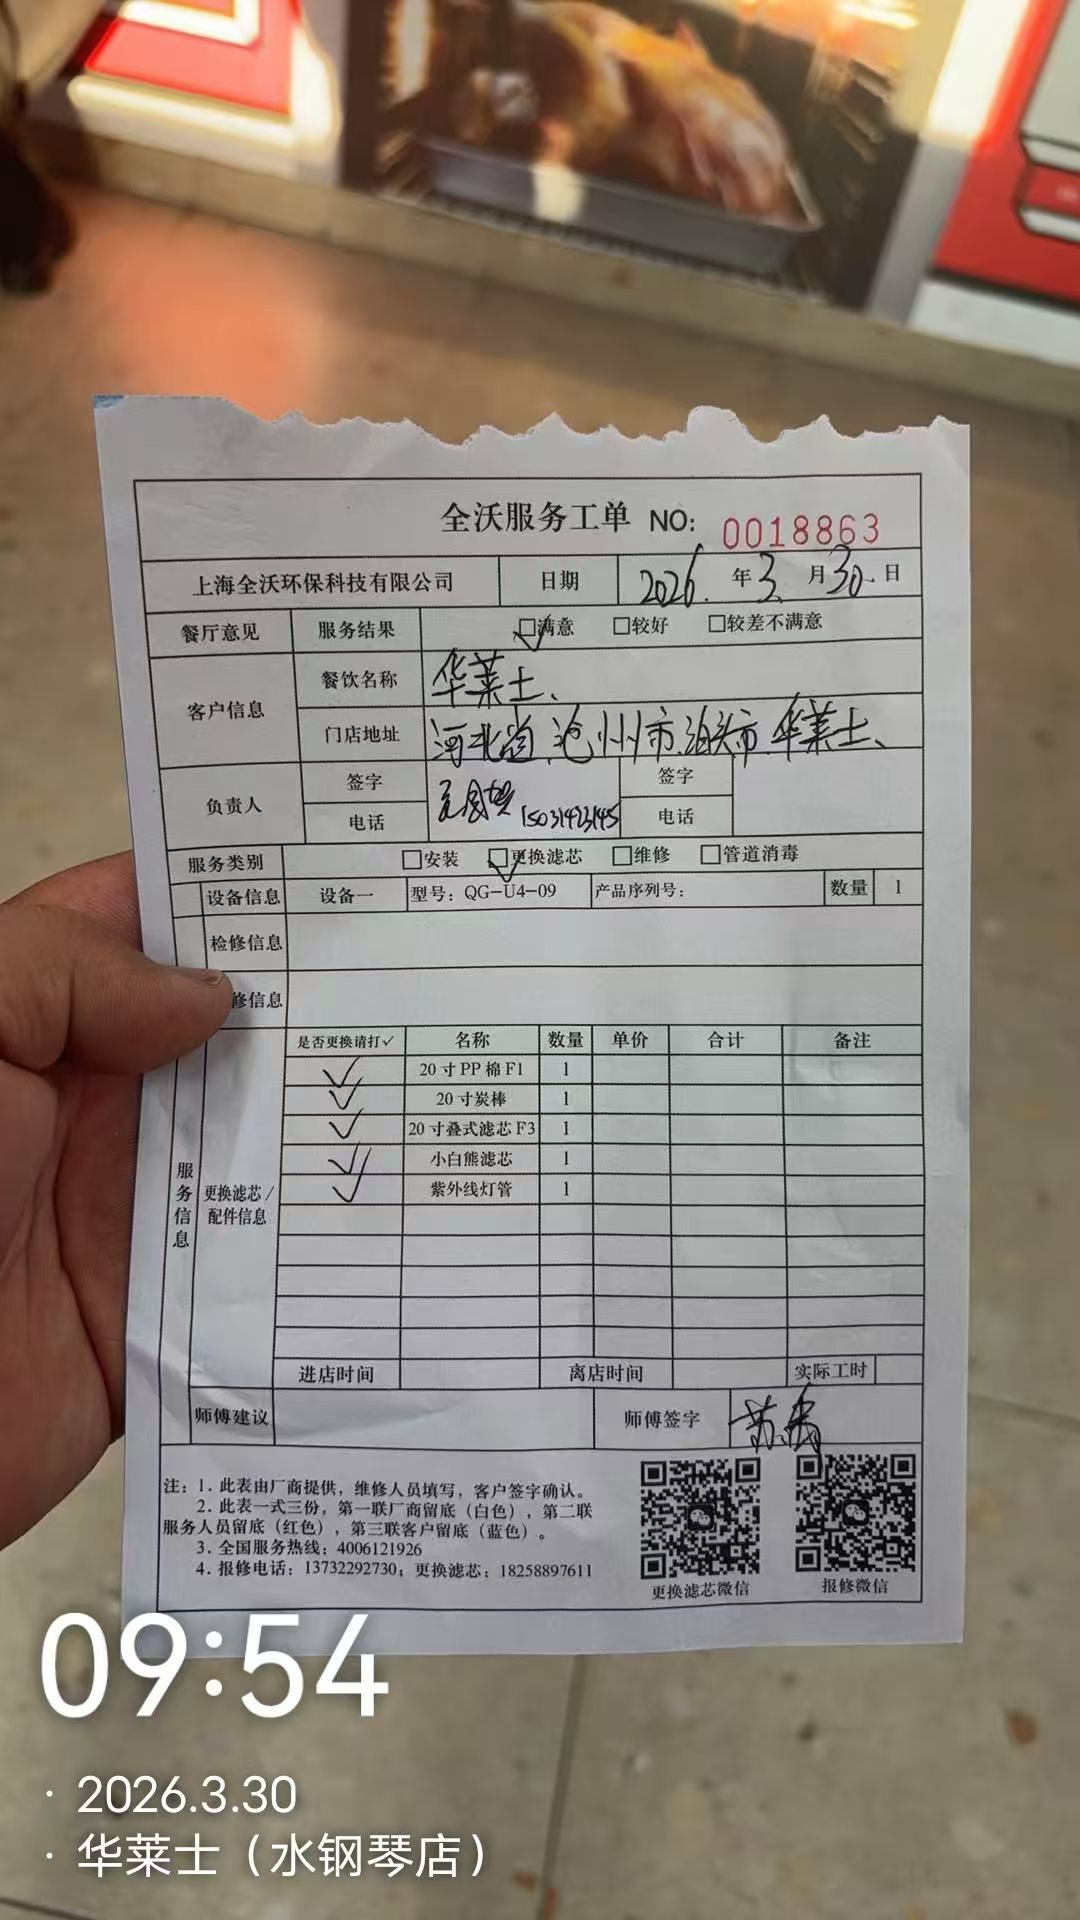 全沃服务工单 NO: 0018863
上海全沃环保科技有限公司 日期 2026. 年 3. 月 30. 日
餐厅意见 服务结果 □满意 □较好 □较差不满意
客户信息 餐饮名称 华莱士、
门店地址 河北省.沧州市.泊头市.华莱士、
负责人 签字 签字
电话 15031423145 电话
服务类别 □安装 □更换滤芯 □维修 □管道消毒
设备信息 设备一 型号：QG-U4-09 产品序列号： 数量 1
检修信息
修信息
是否更换请打✓ 名称 数量 单价 合计 备注
✓ 20寸PP棉F1 1
✓ 20寸炭棒 1
✓ 20寸叠式滤芯F3 1
✓ 小白熊滤芯 1
✓ 紫外线灯管 1
服务信息
更换滤芯/
配件信息
进店时间 离店时间 实际工时
师傅建议 师傅签字
注：1. 此表由厂商提供，维修人员填写，客户签字确认。
2. 此表一式三份，第一联厂商留底（白色），第二联
服务人员留底（红色），第三联客户留底（蓝色）。
3. 全国服务热线：4006121926
4. 报修电话：13732292730；更换滤芯：18258897611
更换滤芯微信 报修微信
09:54
· 2026.3.30
· 华莱士（水钢琴店）